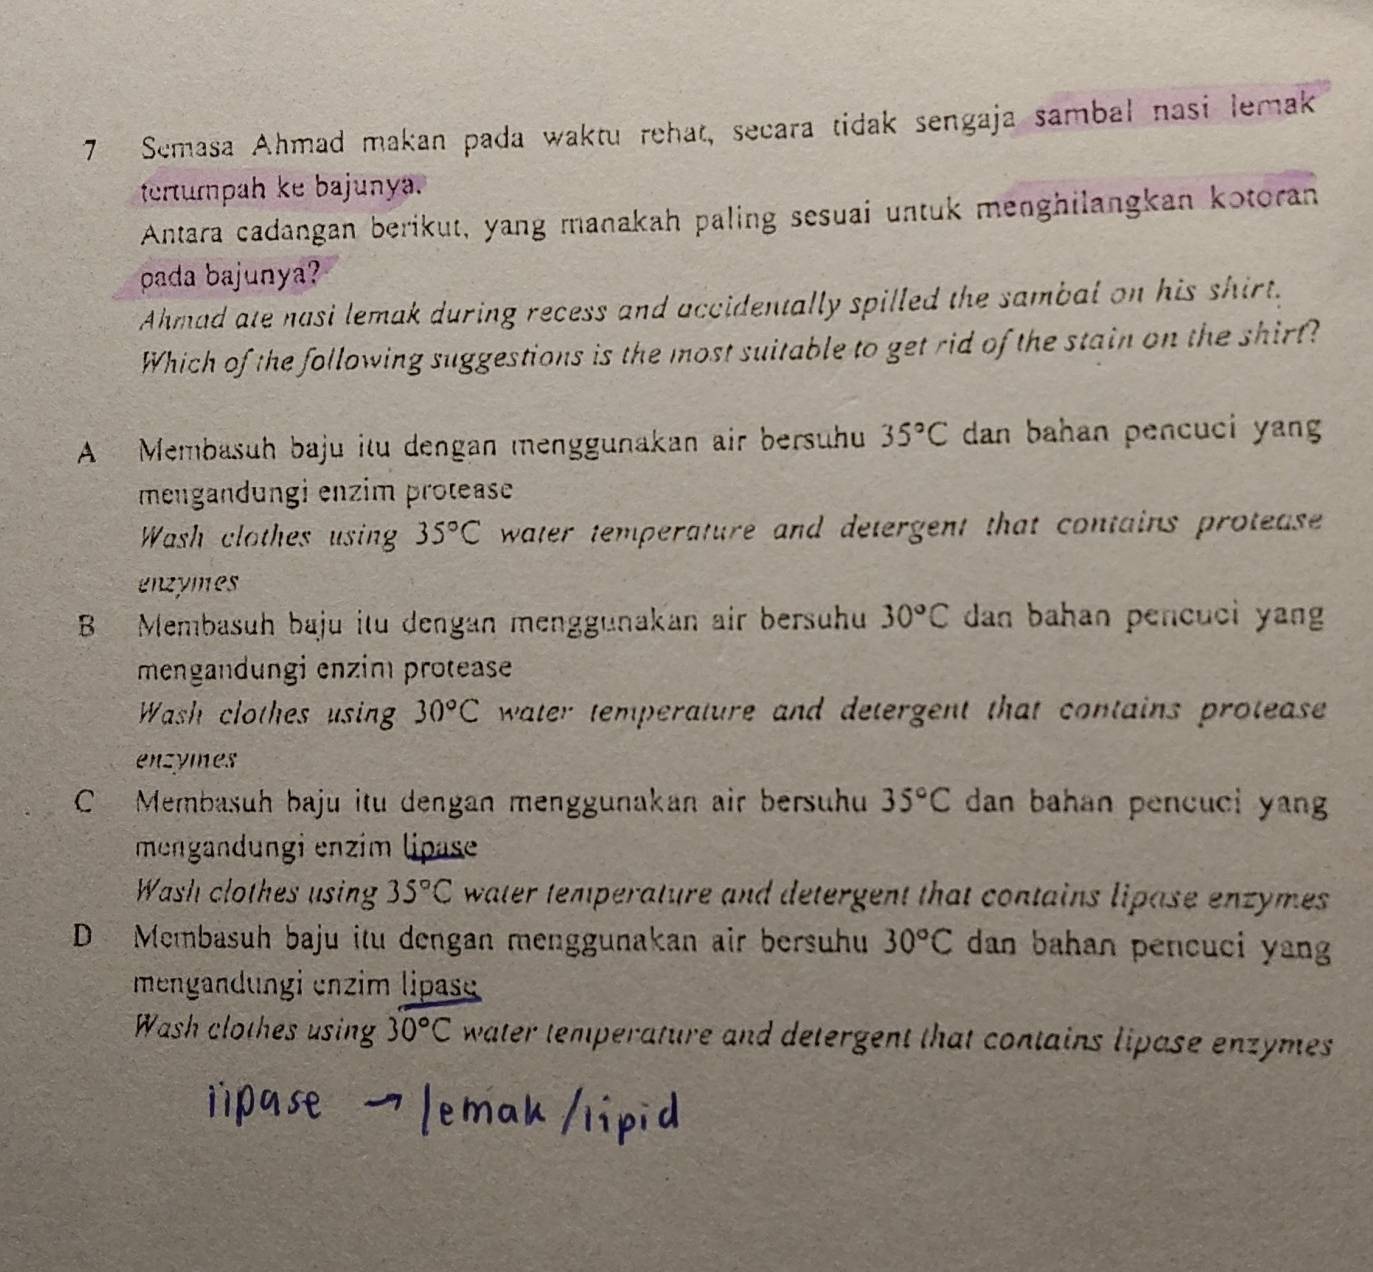 7 Semasa Ahmad makan pada waktu rehat, secara tidak sengaja sambal nasi lemak
tertumpah ke bajunya.
Antara cadangan berikut, yang manakah paling sesuai untuk menghilangkan kotoran
pada bajunya?
Ahmad ate nasi lemak during recess and accidentally spilled the sambal on his shirt.
Which of the following suggestions is the most suitable to get rid of the stain on the shirt?
A Membasuh baju itu dengan menggunakan air bersuhu 35°C dan bahan pencuci yang
mengandungi enzim protease
Wash clothes using 35°C water temperature and detergent that contains protease
enzymes
B Membasuh baju itu dengan menggunakan air bersuhu 30°C dan bahan pencuci yang
mengandungi enzim protease
Wash clothes using 30°C water temperature and detergent that contains protease
enzymes
C Membasuh baju itu dengan menggunakan air bersuhu 35°C dan bahan pencuci yang
mengandungi enzim lipase
Wash clothes using 35°C water temperature and detergent that contains lipase enzymes
D Membasuh baju itu dengan menggunakan air bersuhu 30°C dan bahan pencuci yang
mengandungi enzim lipase
Wash clothes using 30°C water temperature and detergent that contains lipase enzymes
lipase → lemak / lipid